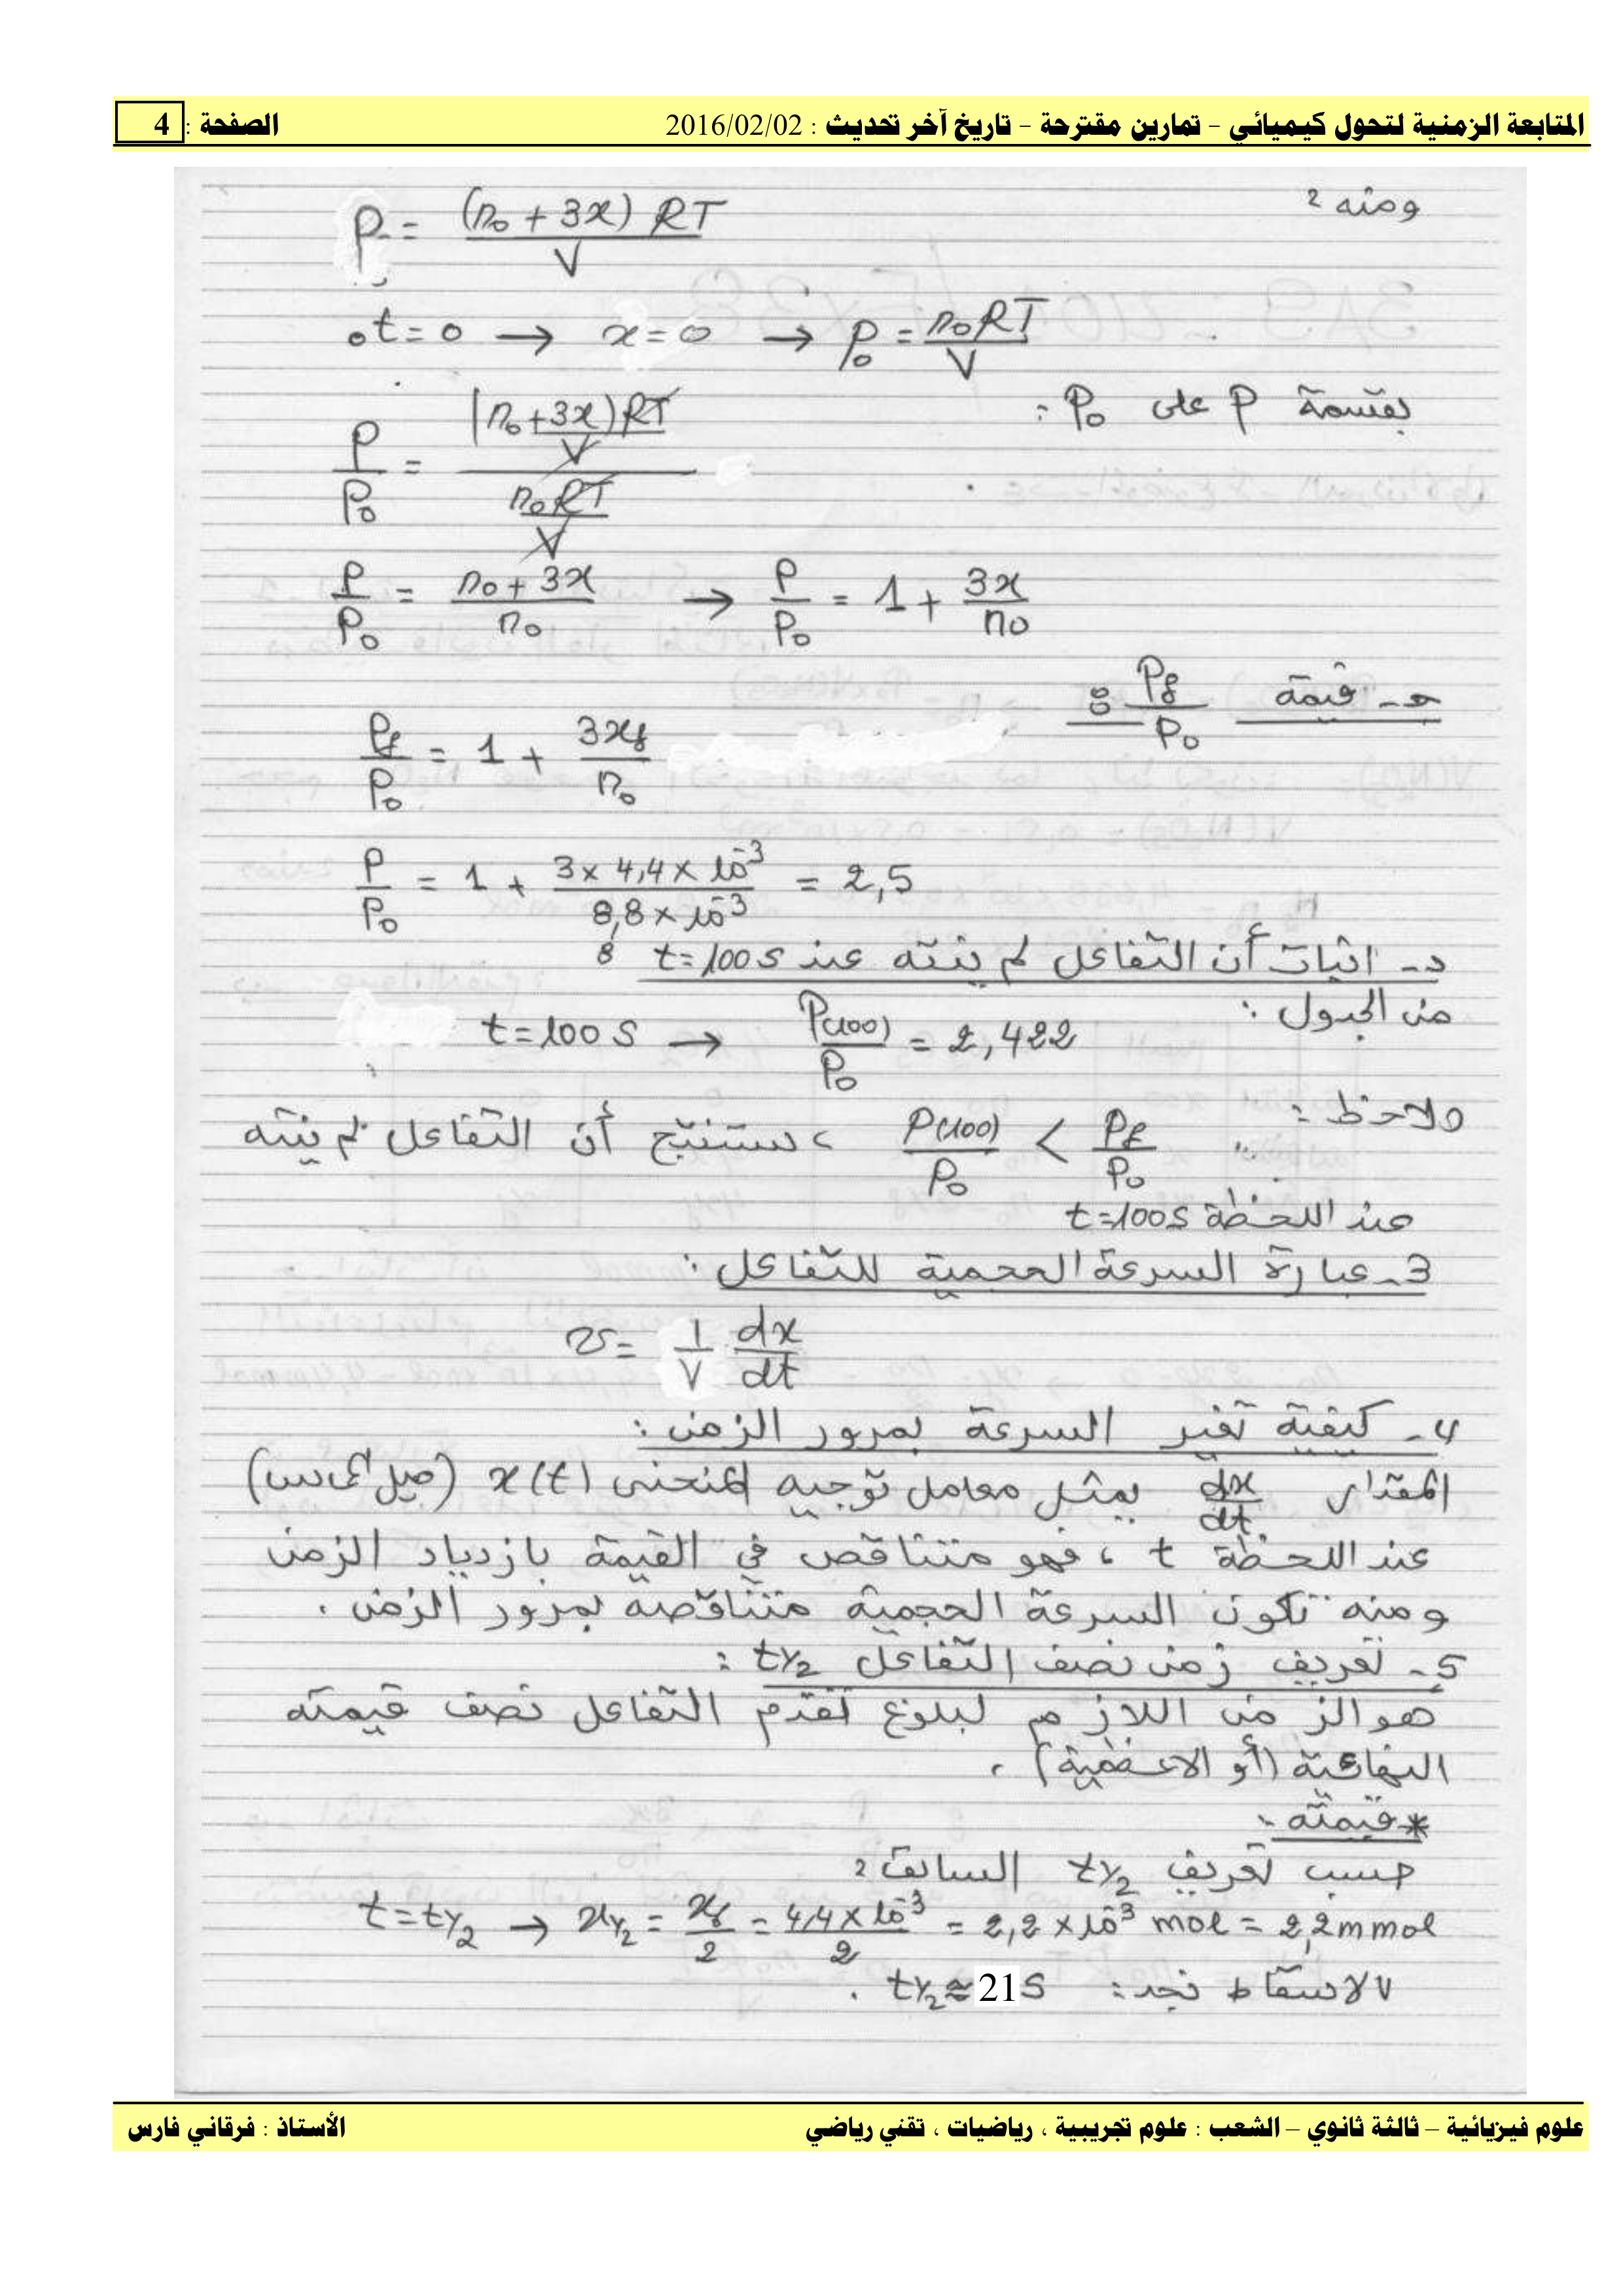 المتابعة الزمنية لتحول كيميائي – تمارين مقترحة – تاريخ آخر تحديث : 2016/02/02 الصفحة : 4
ومنه :
P = (n₀ + 3x) RT / V
• t = 0 → x = 0 → P₀ = n₀RT / V
بقسمة P على P₀ :
P/P₀ = ((n₀ + 3x)RT / V) / (n₀RT / V)
P/P₀ = (n₀ + 3x) / n₀ → P/P₀ = 1 + 3x/n₀
جـ - قيمة Pf/P₀ :
Pf/P₀ = 1 + 3xf/n₀
P/P₀ = 1 + (3 × 4,4 × 10⁻³) / (8,8 × 10⁻³) = 2,5
د - اثبات أن التفاعل لم ينته عند t = 100 s :
من الجدول :
t = 100 s → P(100)/P₀ = 2,422
نلاحظ : P(100)/P₀ < Pf/P₀ ، نستنتج أن التفاعل لم ينته
عند اللحظة t = 100 s
3 - عبارة السرعة الحجمية للتفاعل :
v = 1/V dx/dt
4 - كيفية تغير السرعة بمرور الزمن :
المقدار dx/dt يمثل معامل توجيه المنحنى x(t) (ميل المماس)
عند اللحظة t ، فهو متناقص في القيمة بازدياد الزمن
ومنه تكون السرعة الحجمية متناقصة بمرور الزمن .
5 - تعريف زمن نصف التفاعل t1/2 :
هو الزمن اللازم لبلوغ تقدم التفاعل نصف قيمته
النهائية (أو الاعظمية) .
* قيمته :
حسب تعريف t1/2 السابق :
t = t1/2 → x1/2 = xf/2 = 4,4 × 10⁻³ / 2 = 2,2 × 10⁻³ mol = 2,2 mmol
بالاسقاط نجد : t1/2 ≈ 21 s .
علوم فيزيائية – ثالثة ثانوي – الشعب : علوم تجريبية ، رياضيات ، تقني رياضي الأستاذ : فرقاني فارس